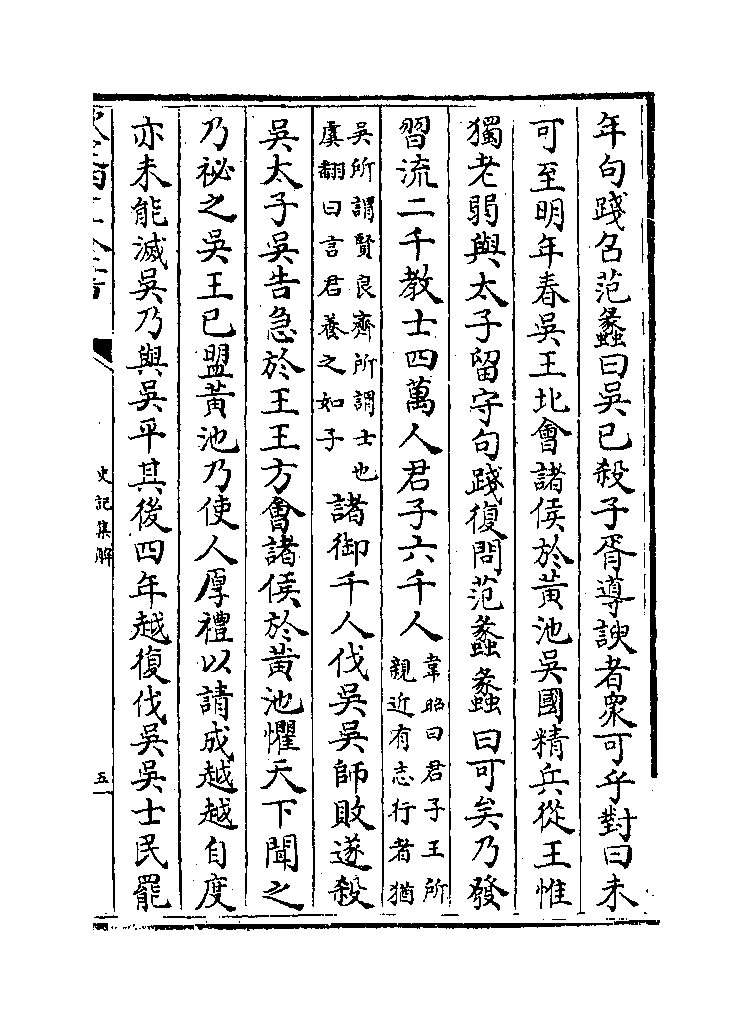 年句踐召范蠡曰吳已殺子胥導諛者衆可乎對曰未
可至明年春吳王北會諸侯於黃池吳國精兵從王惟
獨老弱與太子留守句踐復問范蠡蠡曰可矣乃發
習流二千教士四萬人君子六千人韋昭曰君子王所親近有志行者猶
吳所謂賢良齊所謂士也虞翻曰言君養之如子諸御千人伐吳吳師敗遂殺
吳太子吳告急於王王方會諸侯於黃池懼天下聞之
乃祕之吳王已盟黃池乃使人厚禮以請成越越自度
亦未能滅吳乃與吳平其後四年越復伐吳吳士民罷
史記集解
五